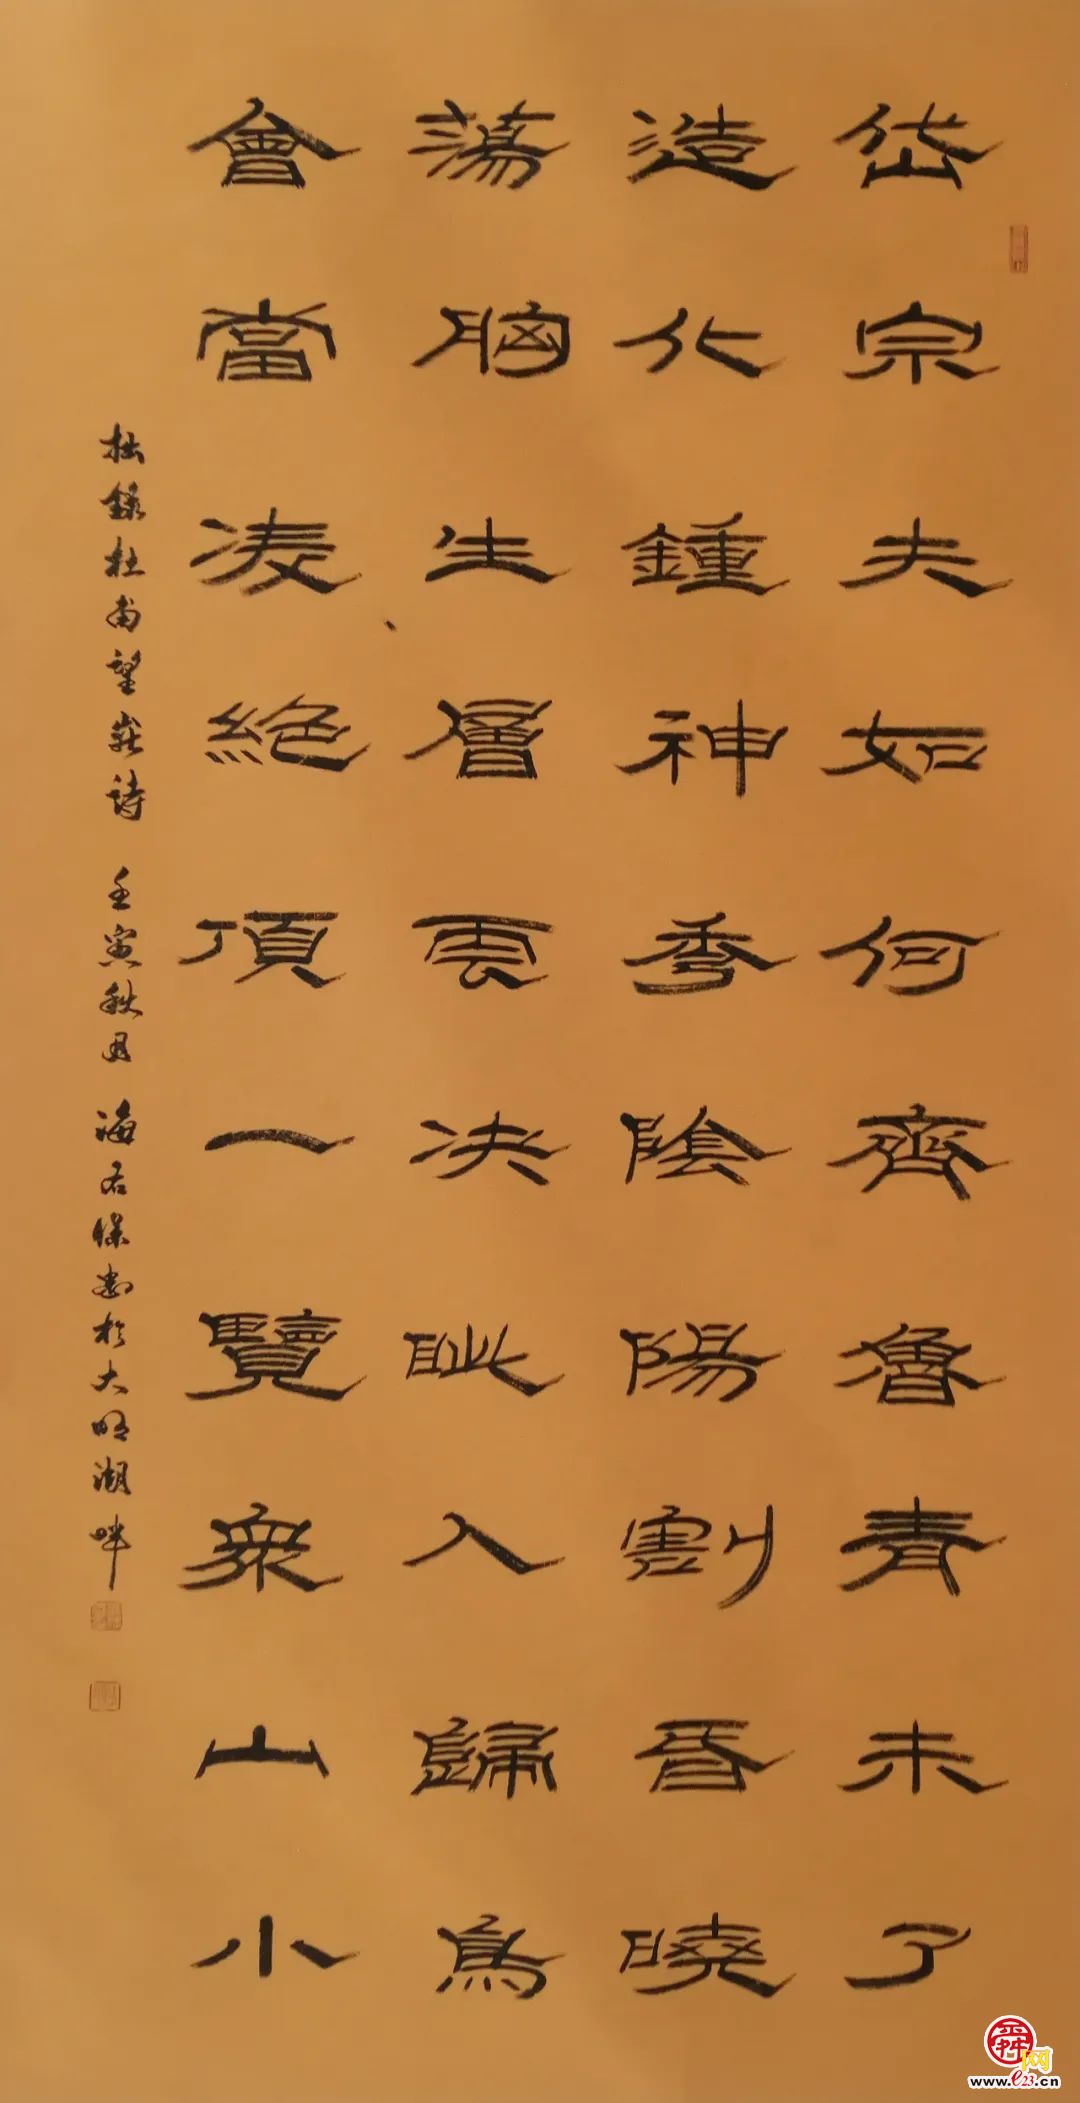 岱宗夫如何齊魯青未了
造化鍾神秀陰陽割昏曉
蕩胸生層雲决眦入歸鳥
會當凌絕頂一覽衆山小
拙錄杜甫望嶽詩 壬寅秋月 海右保於大明湖畔
舜网
www.e23.cn